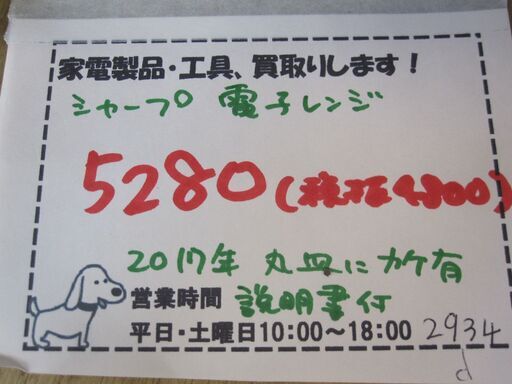 家電製品・工具、買取りします!
シャープ 電子レンジ
5280(税抜4800)
2017年 丸皿にカケ有
営業時間 説明書付
平日・土曜日10:00〜18:00 2934
d